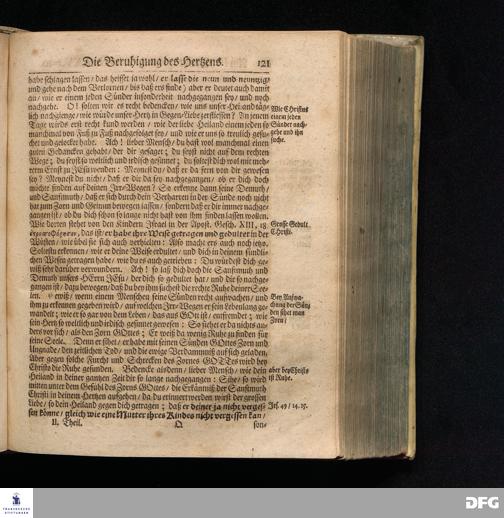 Die Beruhigung des Hertzens. 121
habe schlagen lassen / das heisset ja wohl / er lasse die neun und neuntzig /
und gehe nach dem Verlornen / biß daß ers finde) aber er deutet auch damit
an / wie er einem jeden Sünder insonderheit nachgegangen sey / und noch
nachgehe. O! solten wir es recht bedencken / wie uns unser Heiland täg-
lich nachgienge / wie würde unser Hertz in Gegen-Liebe zerfliessen? An jenem
Tage wirds erst recht kund werden / wie der liebe Heiland einem jeden so
manchmal von Fuß zu Fuß nachgefolget sey / und wie er uns so treulich gesu-
chet und gelocket habe. Ach! lieber Mensch / du hast wol manchmal einen
guten Gedancken gehabt / der dir gesaget; du seyst nicht auf dem rechten
Wege; du seyst zu weltlich und irdisch gesinnet; du soltest dich wol mit meh-
rerm Ernst zu JEsu wenden: Meynest du / daß er da fern von dir gewesen
sey? Meynest du nicht / daß er dir da sey nachgegangen / ob er dich doch
möchte finden auf deinen Irr-Wegen? So erkenne dann seine Demuth /
und Sanfftmuth / daß er sich durch dein Verharren in der Sünde noch nicht
hat zum Zorn und Grimm bewegen lassen / sondern daß er dir immer nachge-
gangen ist / ob du dich schon so lange nicht hast von ihm finden lassen wollen.
Wie dorten stehet von den Kindern Israel in der Apost. Gesch. XIII, 18
das ist / er habe ihre Weise getragen und geduldet in der
Wüsten / wie übel sie sich auch verhielten: Also macht ers auch noch jetzo.
Soltestu erkennen / wie er deine Weise erdultet / und dich in deinem sündli-
chen Wesen getragen habe / wie du es auch getrieben: Du würdest dich ge-
wiß sehr darüber verwundern. Ach! so laß dich doch die Sanfftmuth und
Demuth unsers HErrn JEsu / der dich so geduldet hat / und dir so nachge-
gangen ist / dazu bewegen / daß du bey ihm suchest die rechte Ruhe deiner See-
len. Gewiß / wenn einem Menschen seine Sünden recht aufwachen / und
ihm zu erkennen gegeben wird / auf welchen Irr-Wegen er sein Lebenlang ge-
wandelt; wie er so gar von dem Leben / das aus GOtt ist / entfremdet; wie
sein Hertz so weltlich und irdisch gesinnet gewesen: So siehet er da nichts an-
ders vor sich / als den Zorn GOttes; Er weiß da wenig Ruhe zu finden für
seine Seele. Denn er sihet / er habe mit seinen Sünden GOttes Zorn und
Ungnade / den zeitlichen Tod / und die ewige Verdammniß auf sich geladen.
Aber gegen solche Furcht und Schrecken des Zornes GOTTes wird bey
Christo die Ruhe gefunden. Bedencke alsdenn / lieber Mensch / wie dein
Heiland in deiner gantzen Zeit dir so lange nachgegangen: Sihe / so wird
mitten unter dem Gefühl des Zorns GOttes / die Erkäntniß der Sanfftmuth
Christi in deinem Hertzen aufgehen / da du erinnert werden wirst der grossen
Liebe / so dein Heiland gegen dich getragen; daß er deiner ja nicht verges-
sen könne / gleich wie eine Mutter ihres Kindes nicht vergessen kan /
II. Theil. Q son-
Wie Christus
einem jeden
Sünder nach-
gehe und ihn
suche.
Grosse Gedult
Christi.
Bey Aufwa-
chung der Sün-
den sihet man
Zorn /
aber bey Christo
ist Ruhe.
Jes. 49 / 14. 15.
DFG